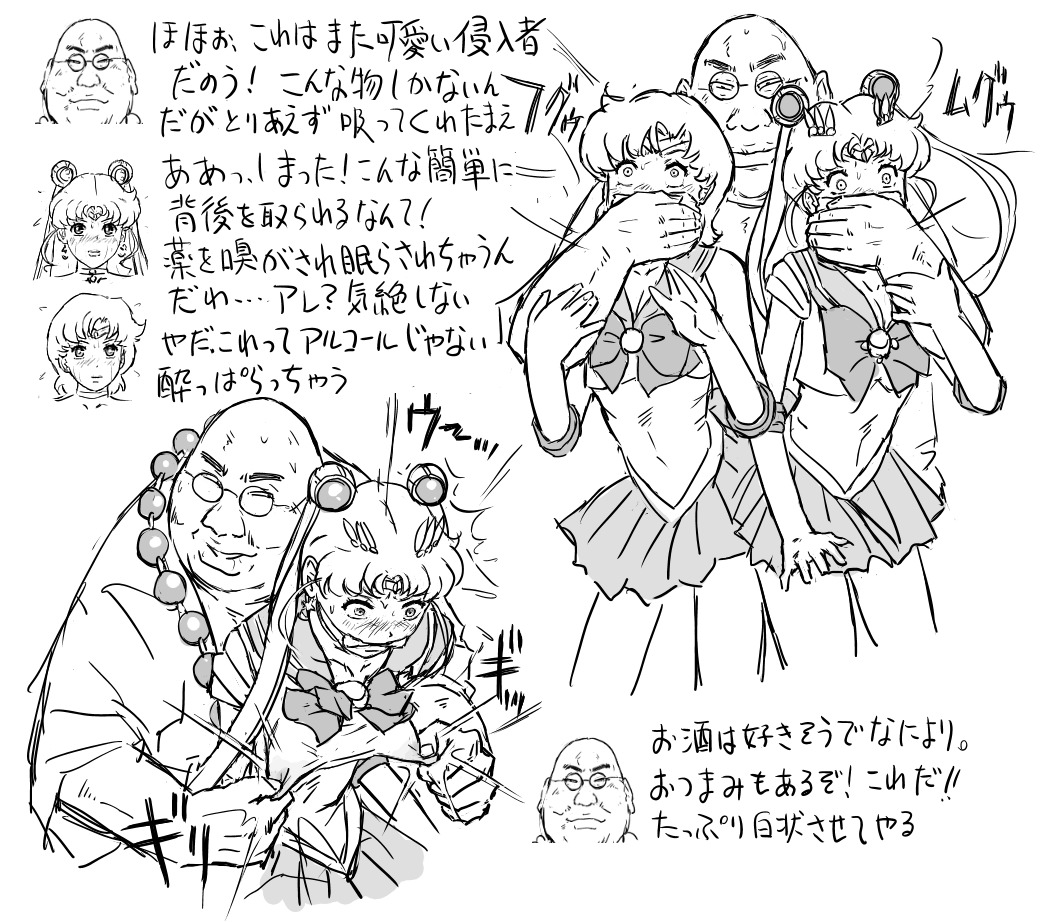 ほほぉ、これはまた可愛い侵入者
だのう！こんな物しかないん
だがとりあえず吸ってくれたまえ
ああっ、しまった！こんな簡単に
背後を取られるなんて！
薬を嗅がされ眠らされちゃうん
だわ…‥アレ？気絶しない
やだ、これってアルコールじゃない
酔っぱらっちゃう
フグゥ
ムグゥ
ウ〜…
ギッ
ギギ
お酒は好きそうでなにより。
おつまみもあるぞ！これだ!!
たっぷり白状させてやる